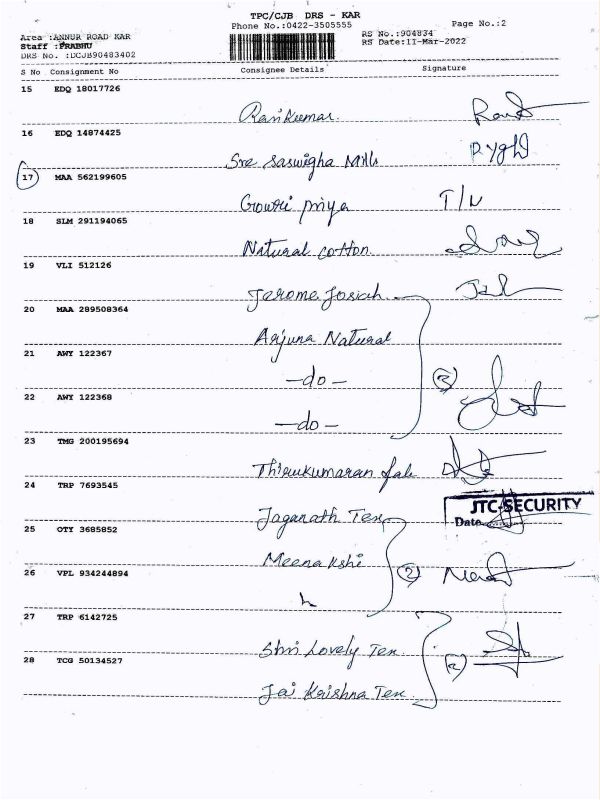 TPC/CJB DRS - KAR
Phone No.:0422-3505555
Page No.:2
Area :ANNUR ROAD KAR
RS No.:904834
Staff :PRABHU
RS Date:11-Mar-2022
DRS No. :DCJB90483402
S No Consignment No Consignee Details Signature
15 EDQ 18017726
Ravikumar.
16 EDQ 14874425
Sree Saswigha Mills
17 MAA 562199605
Gowri Priya T/N
18 SLM 291194065
Natural cotton
19 VLI 512126
Jerome Josiah
20 MAA 289508364
Arjuna Natural
21 AWY 122367
-do- 3
22 AWY 122368
-do-
23 TMG 200195694
Thirukumaran
24 TRP 7693545
JTC-SECURITY
Jaganath Tex
Date
25 OTY 3685852
Meenakshi 2
26 VPL 934244894
27 TRP 6142725
Shri Lovely Tex 2
28 TCG 50134527
Jai Krishna Tex